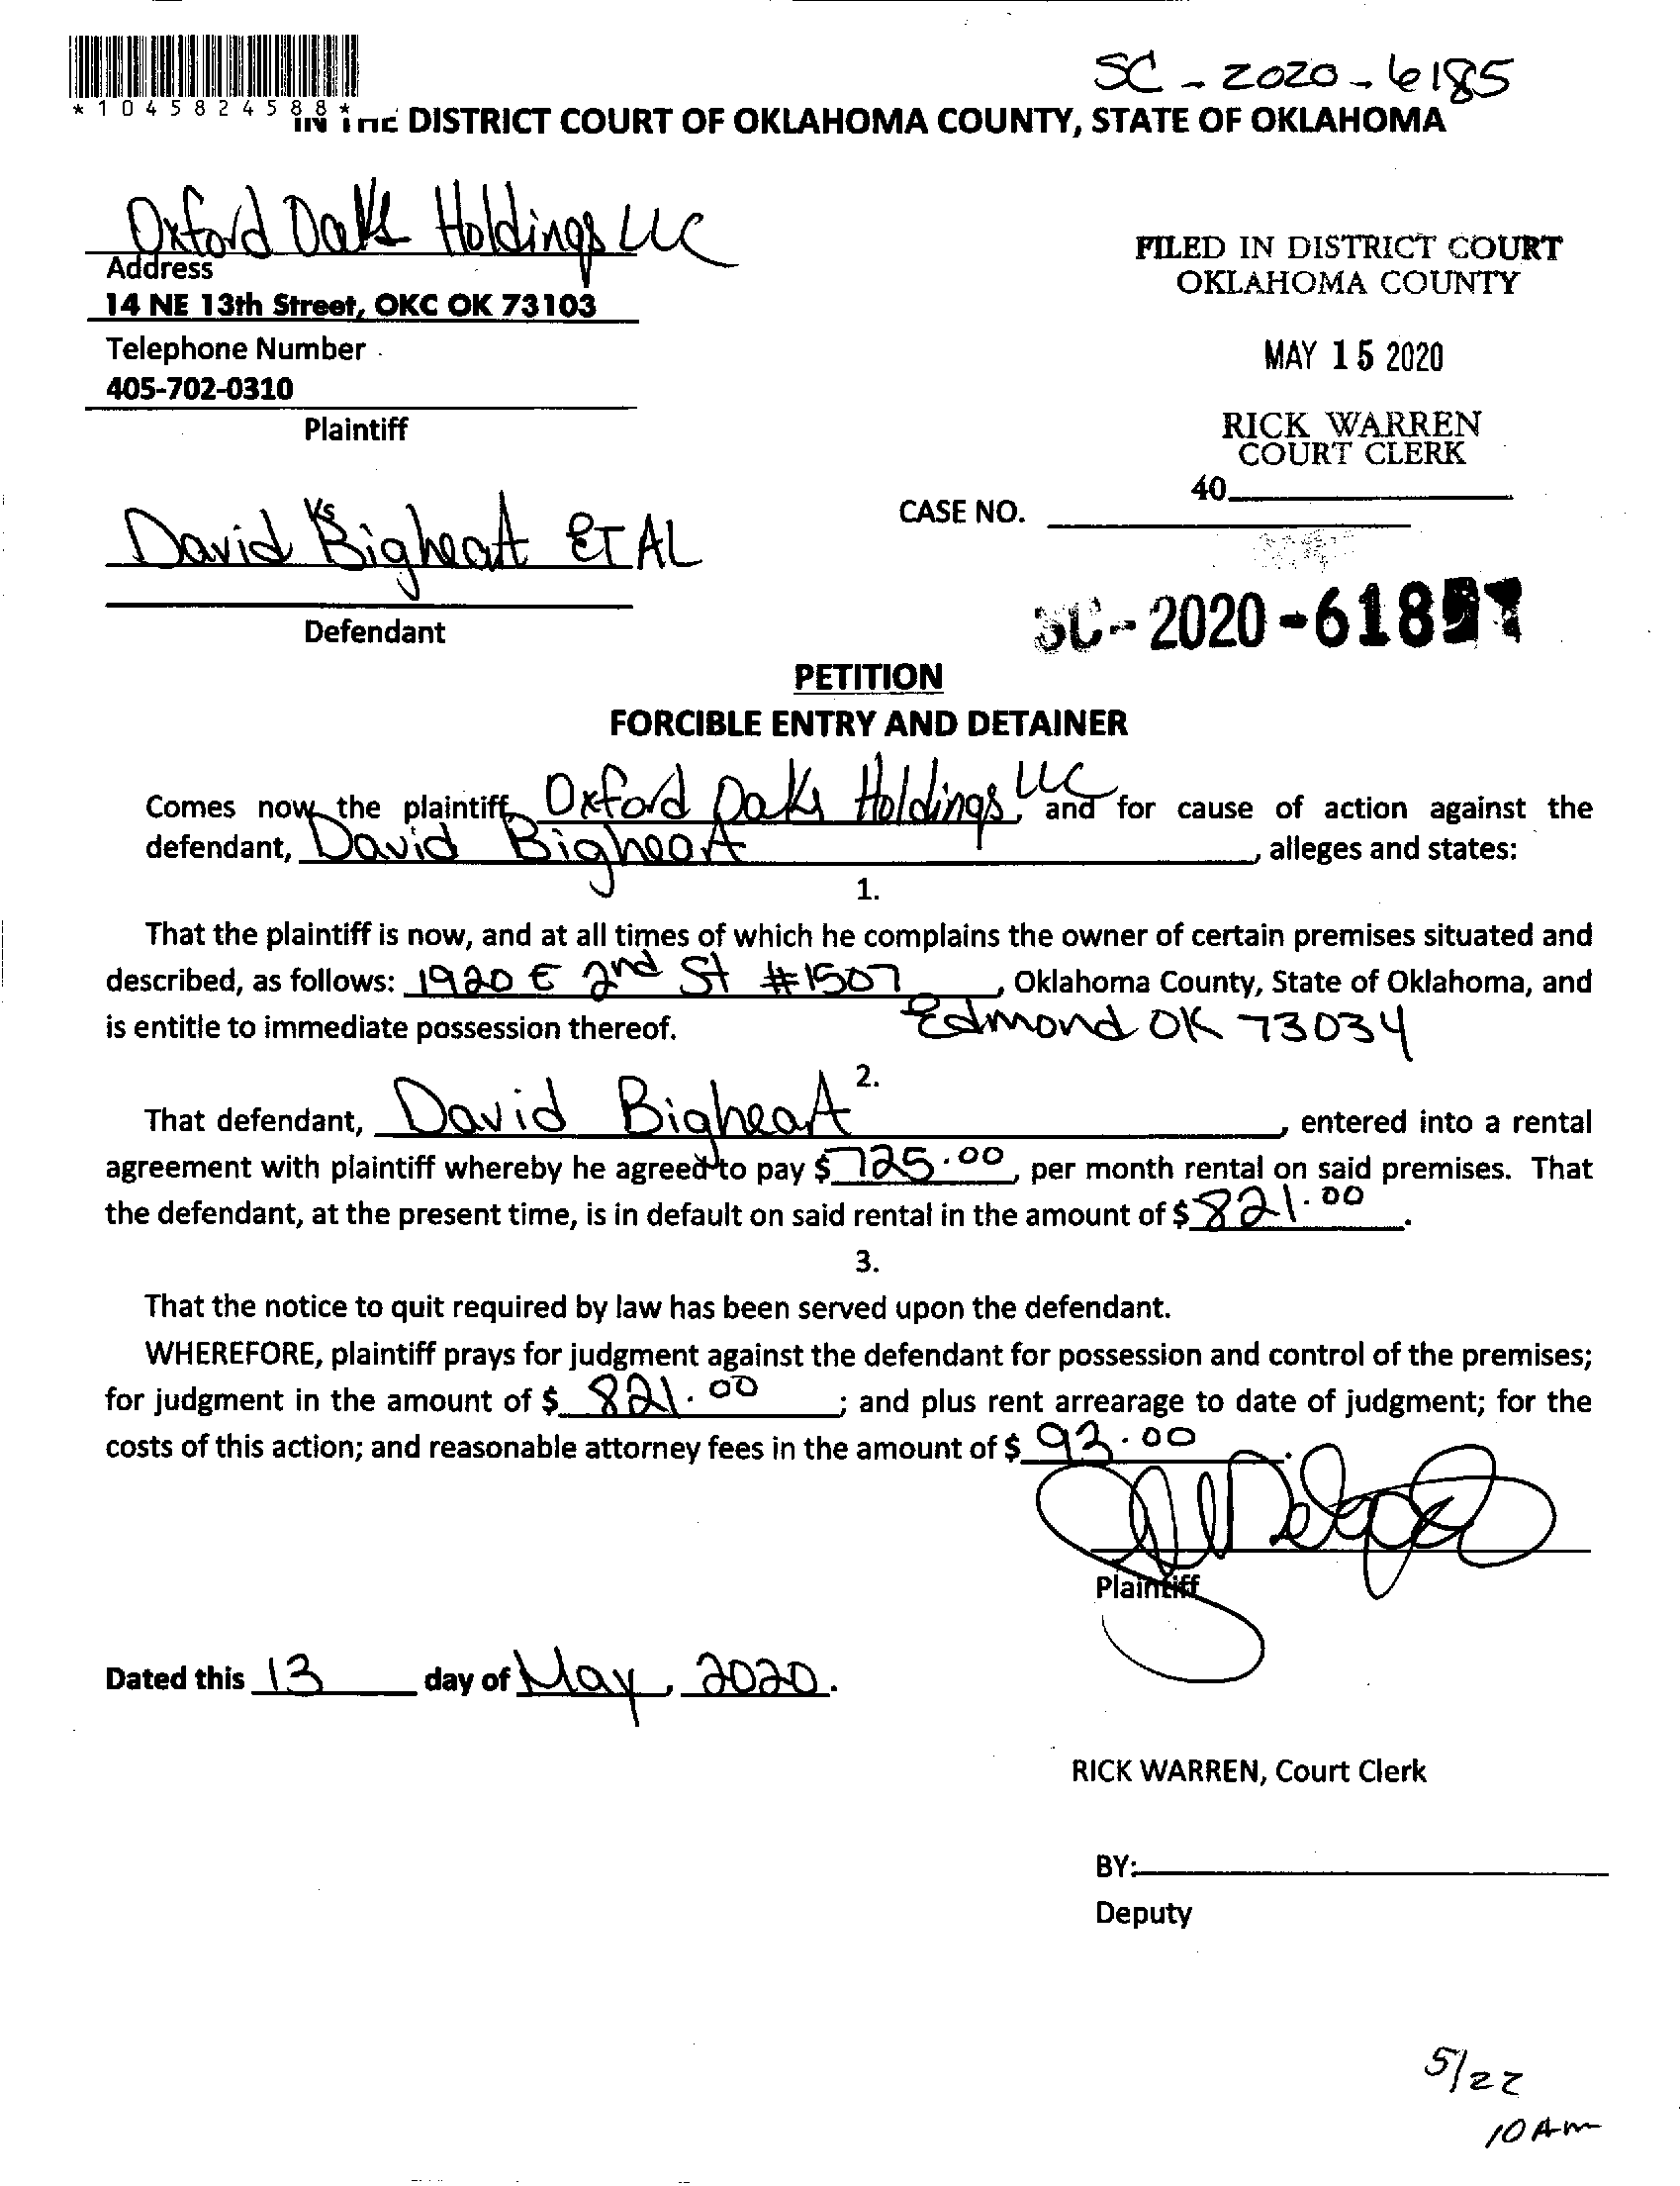 SC - 2020 - 6185
*1045824588*
IN THE DISTRICT COURT OF OKLAHOMA COUNTY, STATE OF OKLAHOMA
Oxford Oaks Holdings LLC
Address
14 NE 13th Street, OKC OK 73103
Telephone Number
405-702-0310
Plaintiff
FILED IN DISTRICT COURT
OKLAHOMA COUNTY
MAY 15 2020
RICK WARREN
COURT CLERK
40
Vs
David Bigheart ET AL
Defendant
CASE NO.
SC-2020-618
PETITION
FORCIBLE ENTRY AND DETAINER
Comes now the plaintiff, Oxford Oaks Holdings LLC, and for cause of action against the
defendant, David Bigheart, alleges and states:
1.
That the plaintiff is now, and at all times of which he complains the owner of certain premises situated and
described, as follows: 1920 E 2nd St #1507, Oklahoma County, State of Oklahoma, and
is entitle to immediate possession thereof. Edmond OK 73034
2.
That defendant, David Bigheart, entered into a rental
agreement with plaintiff whereby he agreed to pay $ 725.00, per month rental on said premises. That
the defendant, at the present time, is in default on said rental in the amount of $ 821.00.
3.
That the notice to quit required by law has been served upon the defendant.
WHEREFORE, plaintiff prays for judgment against the defendant for possession and control of the premises;
for judgment in the amount of $ 821.00; and plus rent arrearage to date of judgment; for the
costs of this action; and reasonable attorney fees in the amount of $ 93.00.
Plaintiff
Dated this 13 day of May, 2020.
RICK WARREN, Court Clerk
BY:
Deputy
5/22
10 Am